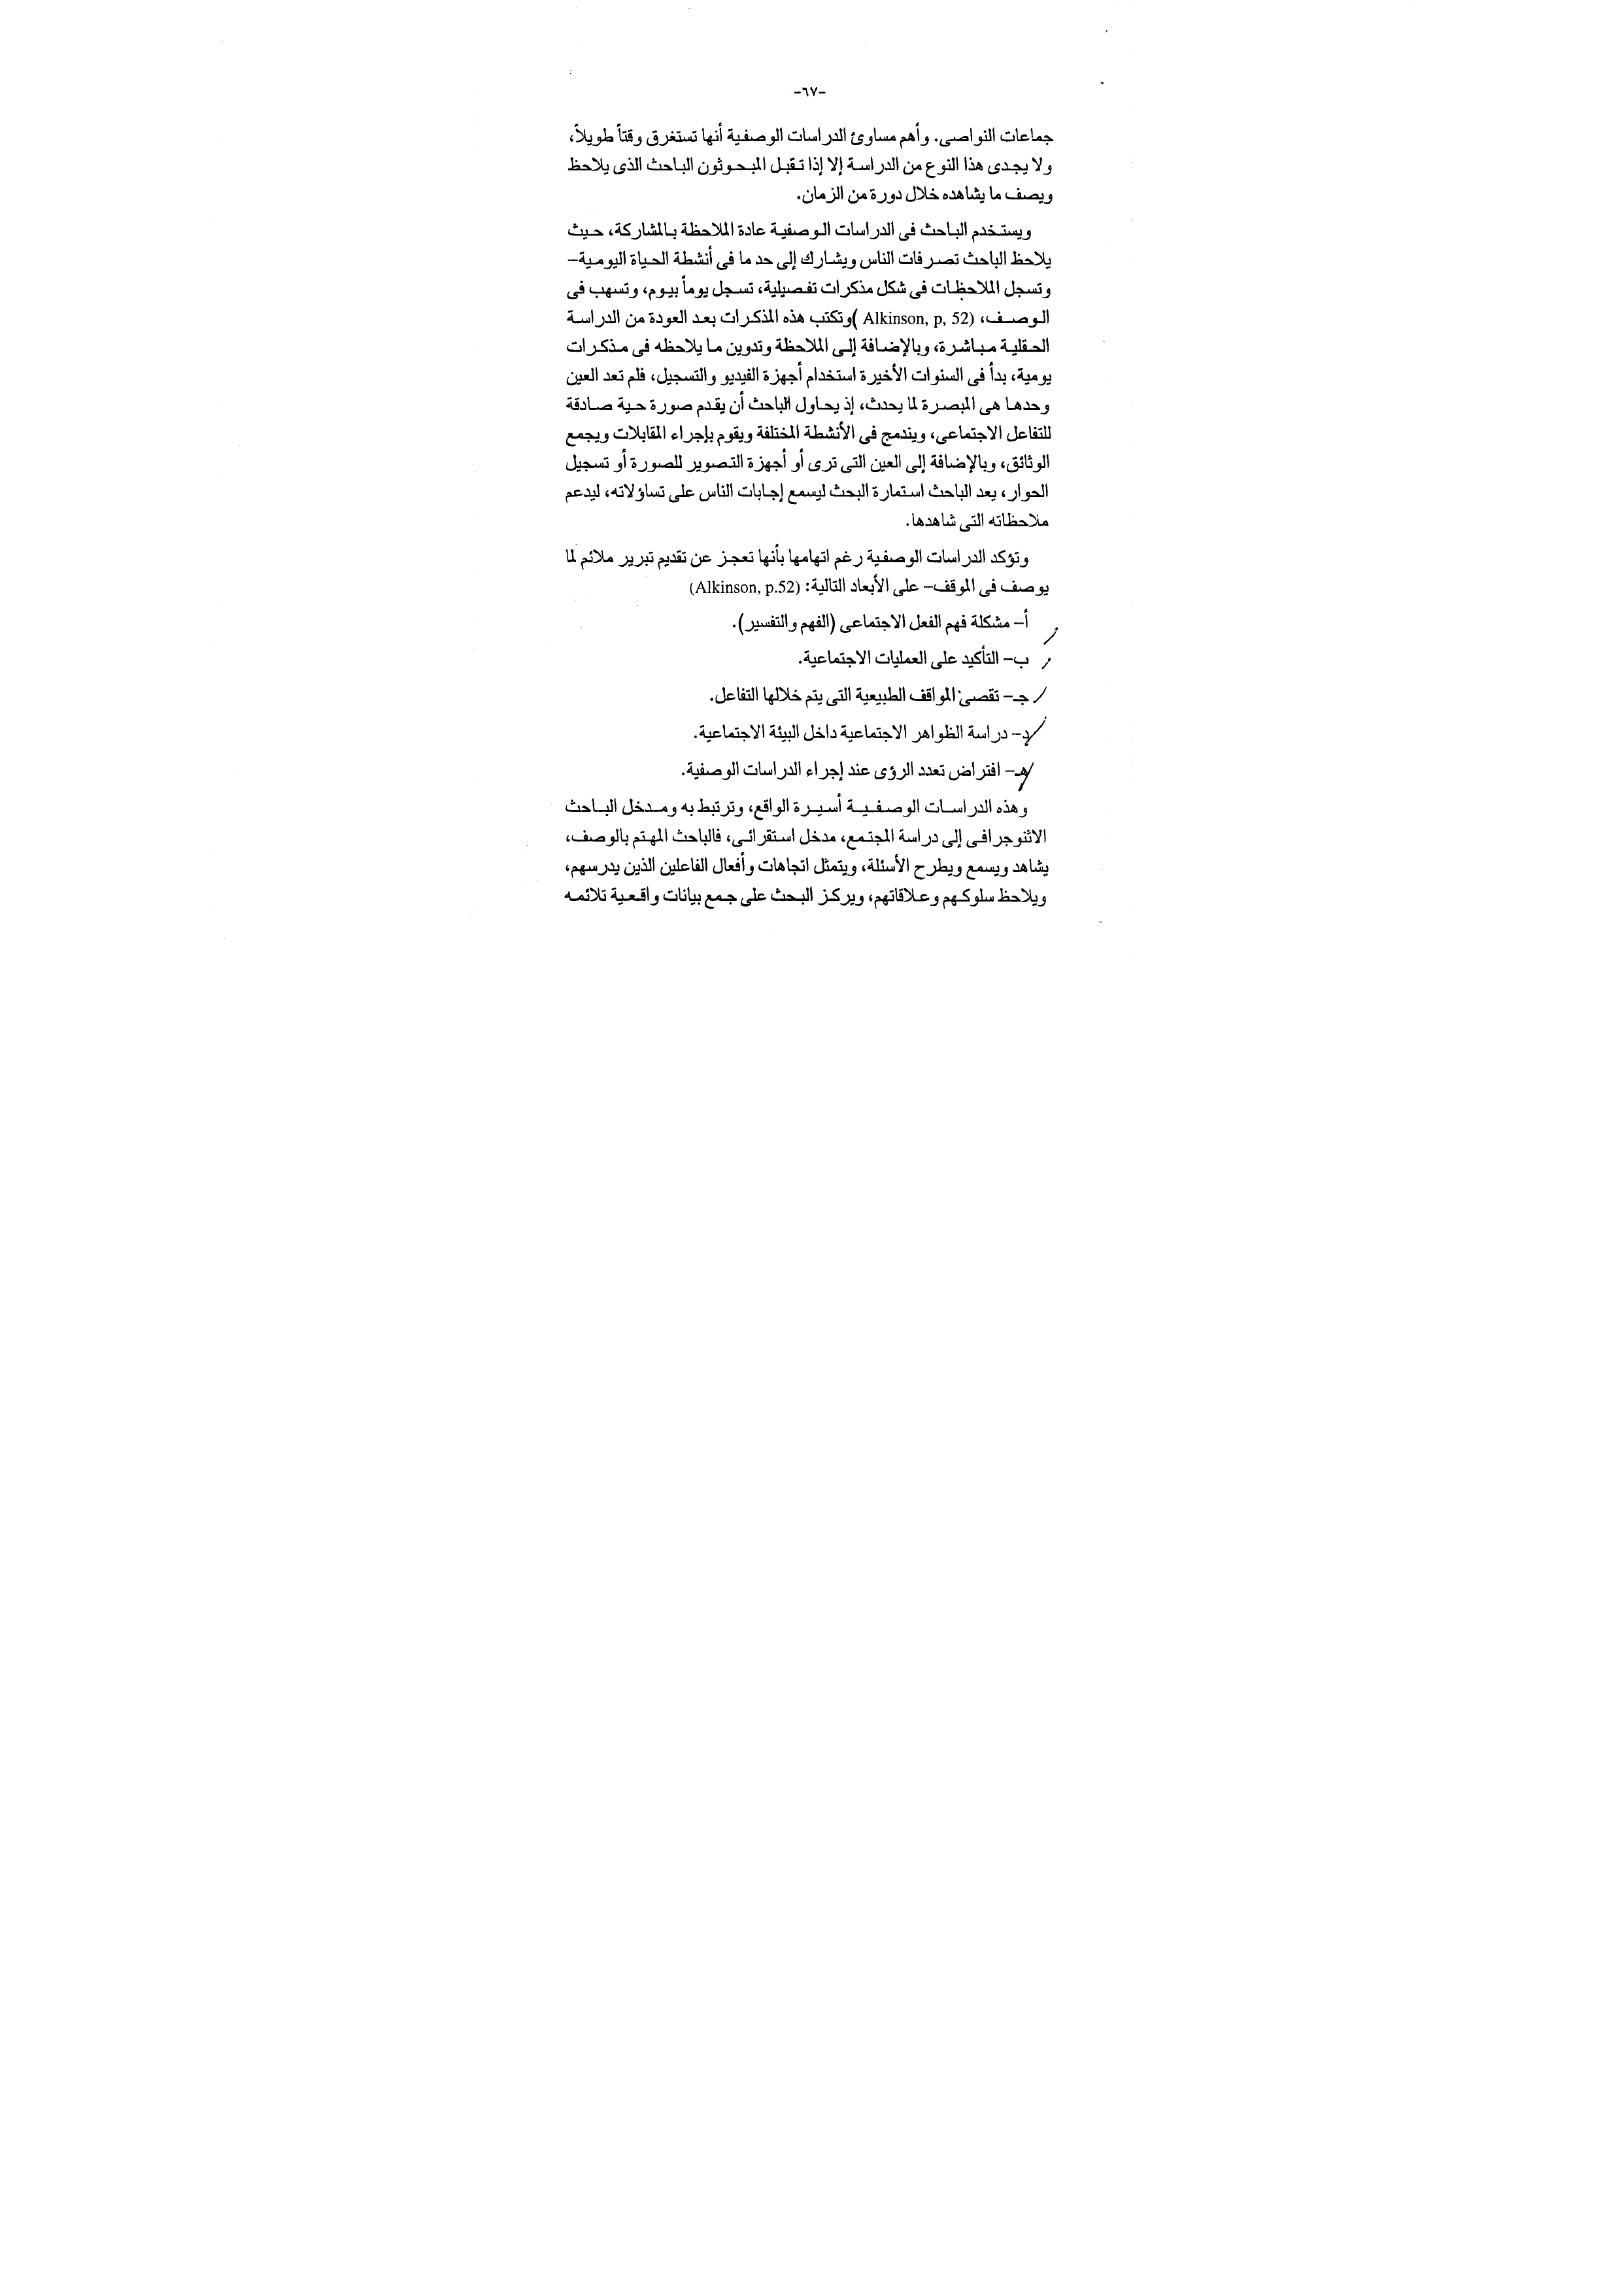 -٦٧-
جماعات النواصى. وأهم مساوئ الدراسات الوصفية أنها تستغرق وقتاً طويلاً،
ولا يجدى هذا النوع من الدراسة إلا إذا تقبل المبحوثون الباحث الذى يلاحظ
ويصف ما يشاهده خلال دورة من الزمان.
ويستخدم الباحث فى الدراسات الوصفية عادة الملاحظة بالمشاركة، حيث
يلاحظ الباحث تصرفات الناس ويشارك إلى حد ما فى أنشطة الحياة اليومية-
وتسجل الملاحظات فى شكل مذكرات تفصيلية، تسجل يوماً بيوم، وتسهب فى
الوصف، (Alkinson, p, 52 )وتكتب هذه المذكرات بعد العودة من الدراسة
الحقلية مباشرة، وبالإضافة إلى الملاحظة وتدوين ما يلاحظه فى مذكرات
يومية، بدأ فى السنوات الأخيرة استخدام أجهزة الفيديو والتسجيل، فلم تعد العين
وحدها هى المبصرة لما يحدث، إذ يحاول الباحث أن يقدم صورة حية صادقة
للتفاعل الاجتماعى، ويندمج فى الأنشطة المختلفة ويقوم بإجراء المقابلات ويجمع
الوثائق، وبالإضافة إلى العين التى ترى أو أجهزة التصوير للصورة أو تسجيل
الحوار، يعد الباحث استمارة البحث ليسمع إجابات الناس على تساؤلاته، ليدعم
ملاحظاته التى شاهدها.
وتؤكد الدراسات الوصفية رغم اتهامها بأنها تعجز عن تقديم تبرير ملائم لما
يوصف فى الموقف- على الأبعاد التالية: (Alkinson, p.52)
أ- مشكلة فهم الفعل الاجتماعى (الفهم والتفسير).
ب- التأكيد على العمليات الاجتماعية.
جـ- تقصى المواقف الطبيعية التى يتم خلالها التفاعل.
د- دراسة الظواهر الاجتماعية داخل البيئة الاجتماعية.
هـ- افتراض تعدد الرؤى عند إجراء الدراسات الوصفية.
وهذه الدراسات الوصفية أسيرة الواقع، وترتبط به ومدخل الباحث
الاثنوجرافى إلى دراسة المجتمع، مدخل استقرائى، فالباحث المهتم بالوصف،
يشاهد ويسمع ويطرح الأسئلة، ويتمثل اتجاهات وأفعال الفاعلين الذين يدرسهم،
ويلاحظ سلوكهم وعلاقاتهم، ويركز البحث على جمع بيانات واقعية تلائمه